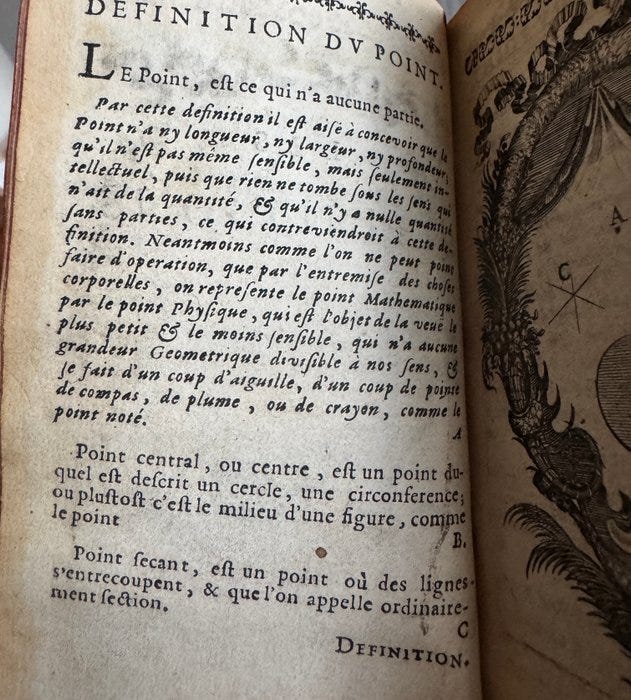 DEFINITION DV POINT.
LE Point, eſt ce qui n'a aucune partie.
Par cette definition il eſt aiſé à concevoir que le
Point n'a ny longueur, ny largeur, ny profondeur,
qu'il n'eſt pas même ſenſible, mais ſeulement in-
tellectuel, puis que rien ne tombe ſous les ſens qui
n'ait de la quantité, & qu'il n'y a nulle quantité
ſans parties, ce qui contreviendroit à cette de-
finition. Neantmoins comme l'on ne peut point
faire d'operation, que par l'entremiſe des choſes
corporelles, on repreſente le point Mathematique
par le point Phyſique, qui eſt l'objet de la veuë le
plus petit & le moins ſenſible, qui n'a aucune
grandeur Geometrique diviſible à nos ſens, &
ſe fait d'un coup d'aiguille, d'un coup de pointe
de compas, de plume, ou de crayon, comme le
point noté.
A
Point central, ou centre, eſt un point du-
quel eſt deſcrit un cercle, une circonference;
ou pluſtoſt c'eſt le milieu d'une figure, comme
le point
B.
Point ſecant, eſt un point où des lignes
s'entrecoupent, & que l'on appelle ordinaire-
ment ſection.
C
DEFINITION.
A
C